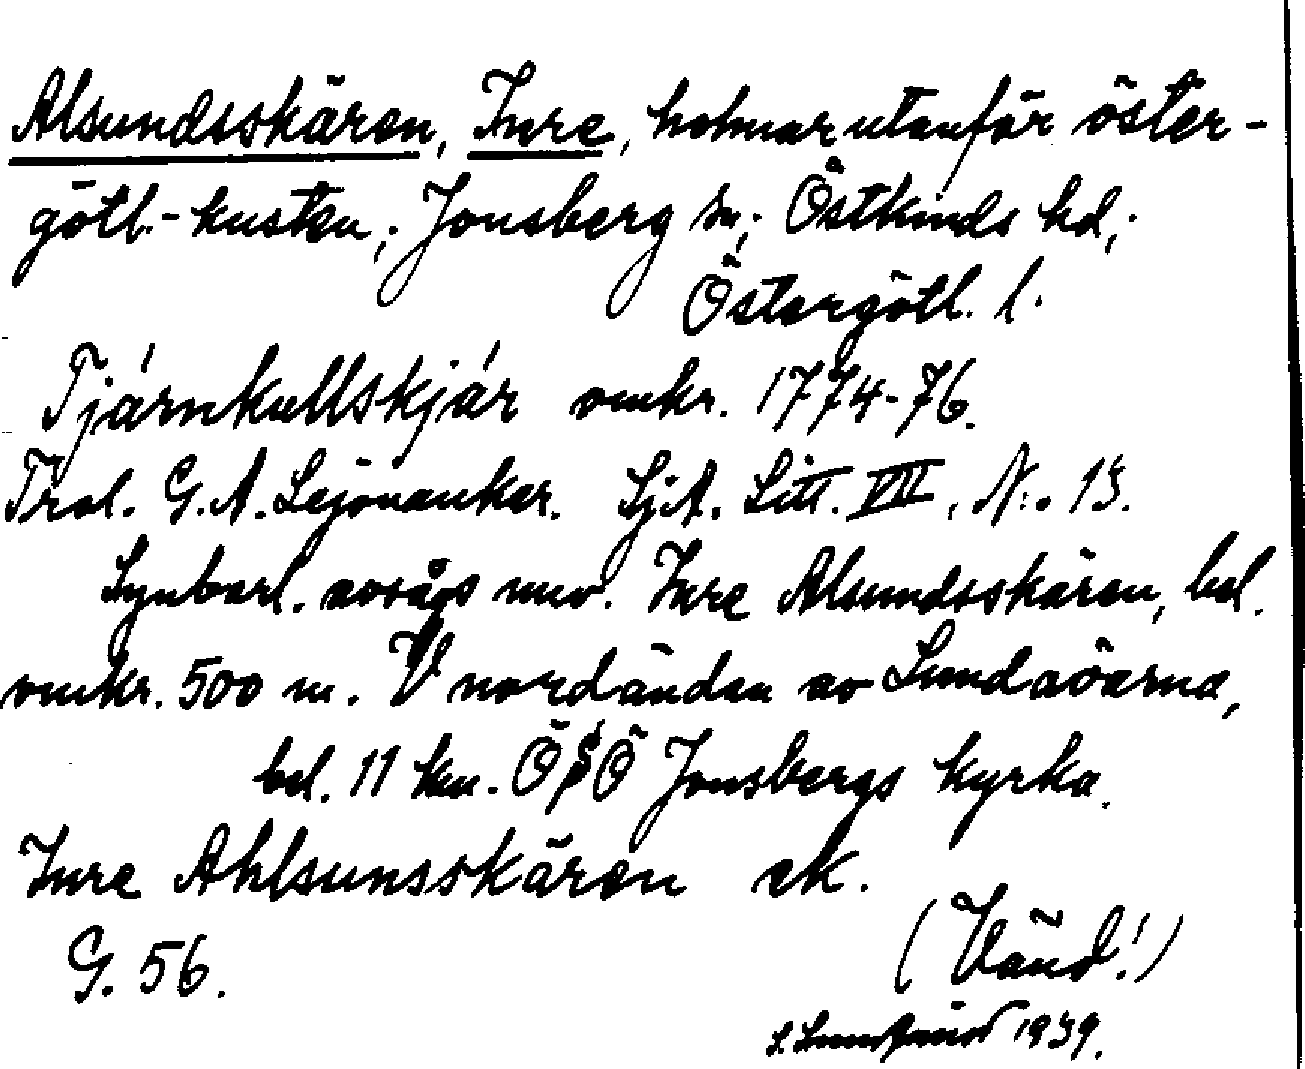 Alsundsskären, Inre, holmar utanför öster-
götl.-kusten; Jonsberg sn; Östkinds hd;
Östergötl. l.
Tjárnkullskjár omkr. 1774-76.
Trol. G. A. Lejonanker. SjA. Litt. VIII, N:o 13.
Synbarl. avsågs nuv. Inre Alsundsskären, bel.
omkr. 500 m. V nordändan av Lundaöarna,
bel. 11 km. ÖSÖ Jonsbergs kyrka.
Inre Ahlsunsskären ek.
G. 56.
(Vänd!)
1939.